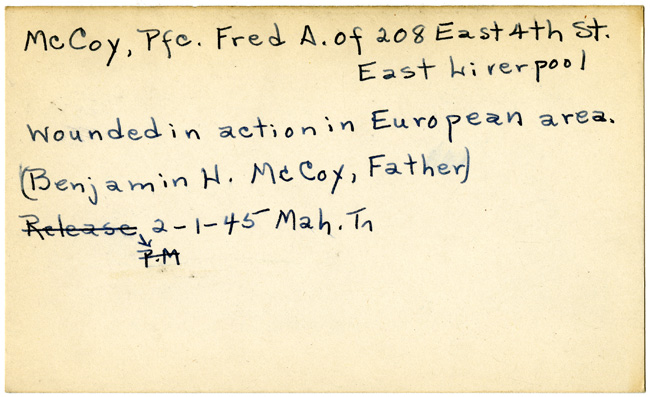 McCoy, Pfc. Fred A. of 208 East 4th St.
East Liverpool
Wounded in action in European area.
(Benjamin H. McCoy, Father)
Release 2-1-45 Mah. Tn
P.M